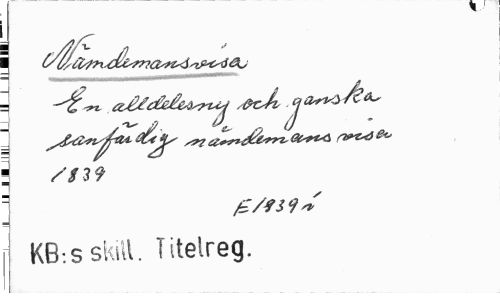 Nämdemansvisa
En alldelesny och ganska
sanfärdig nämdemans visa
1839
E 1839 i
KB:s skill. Titelreg.